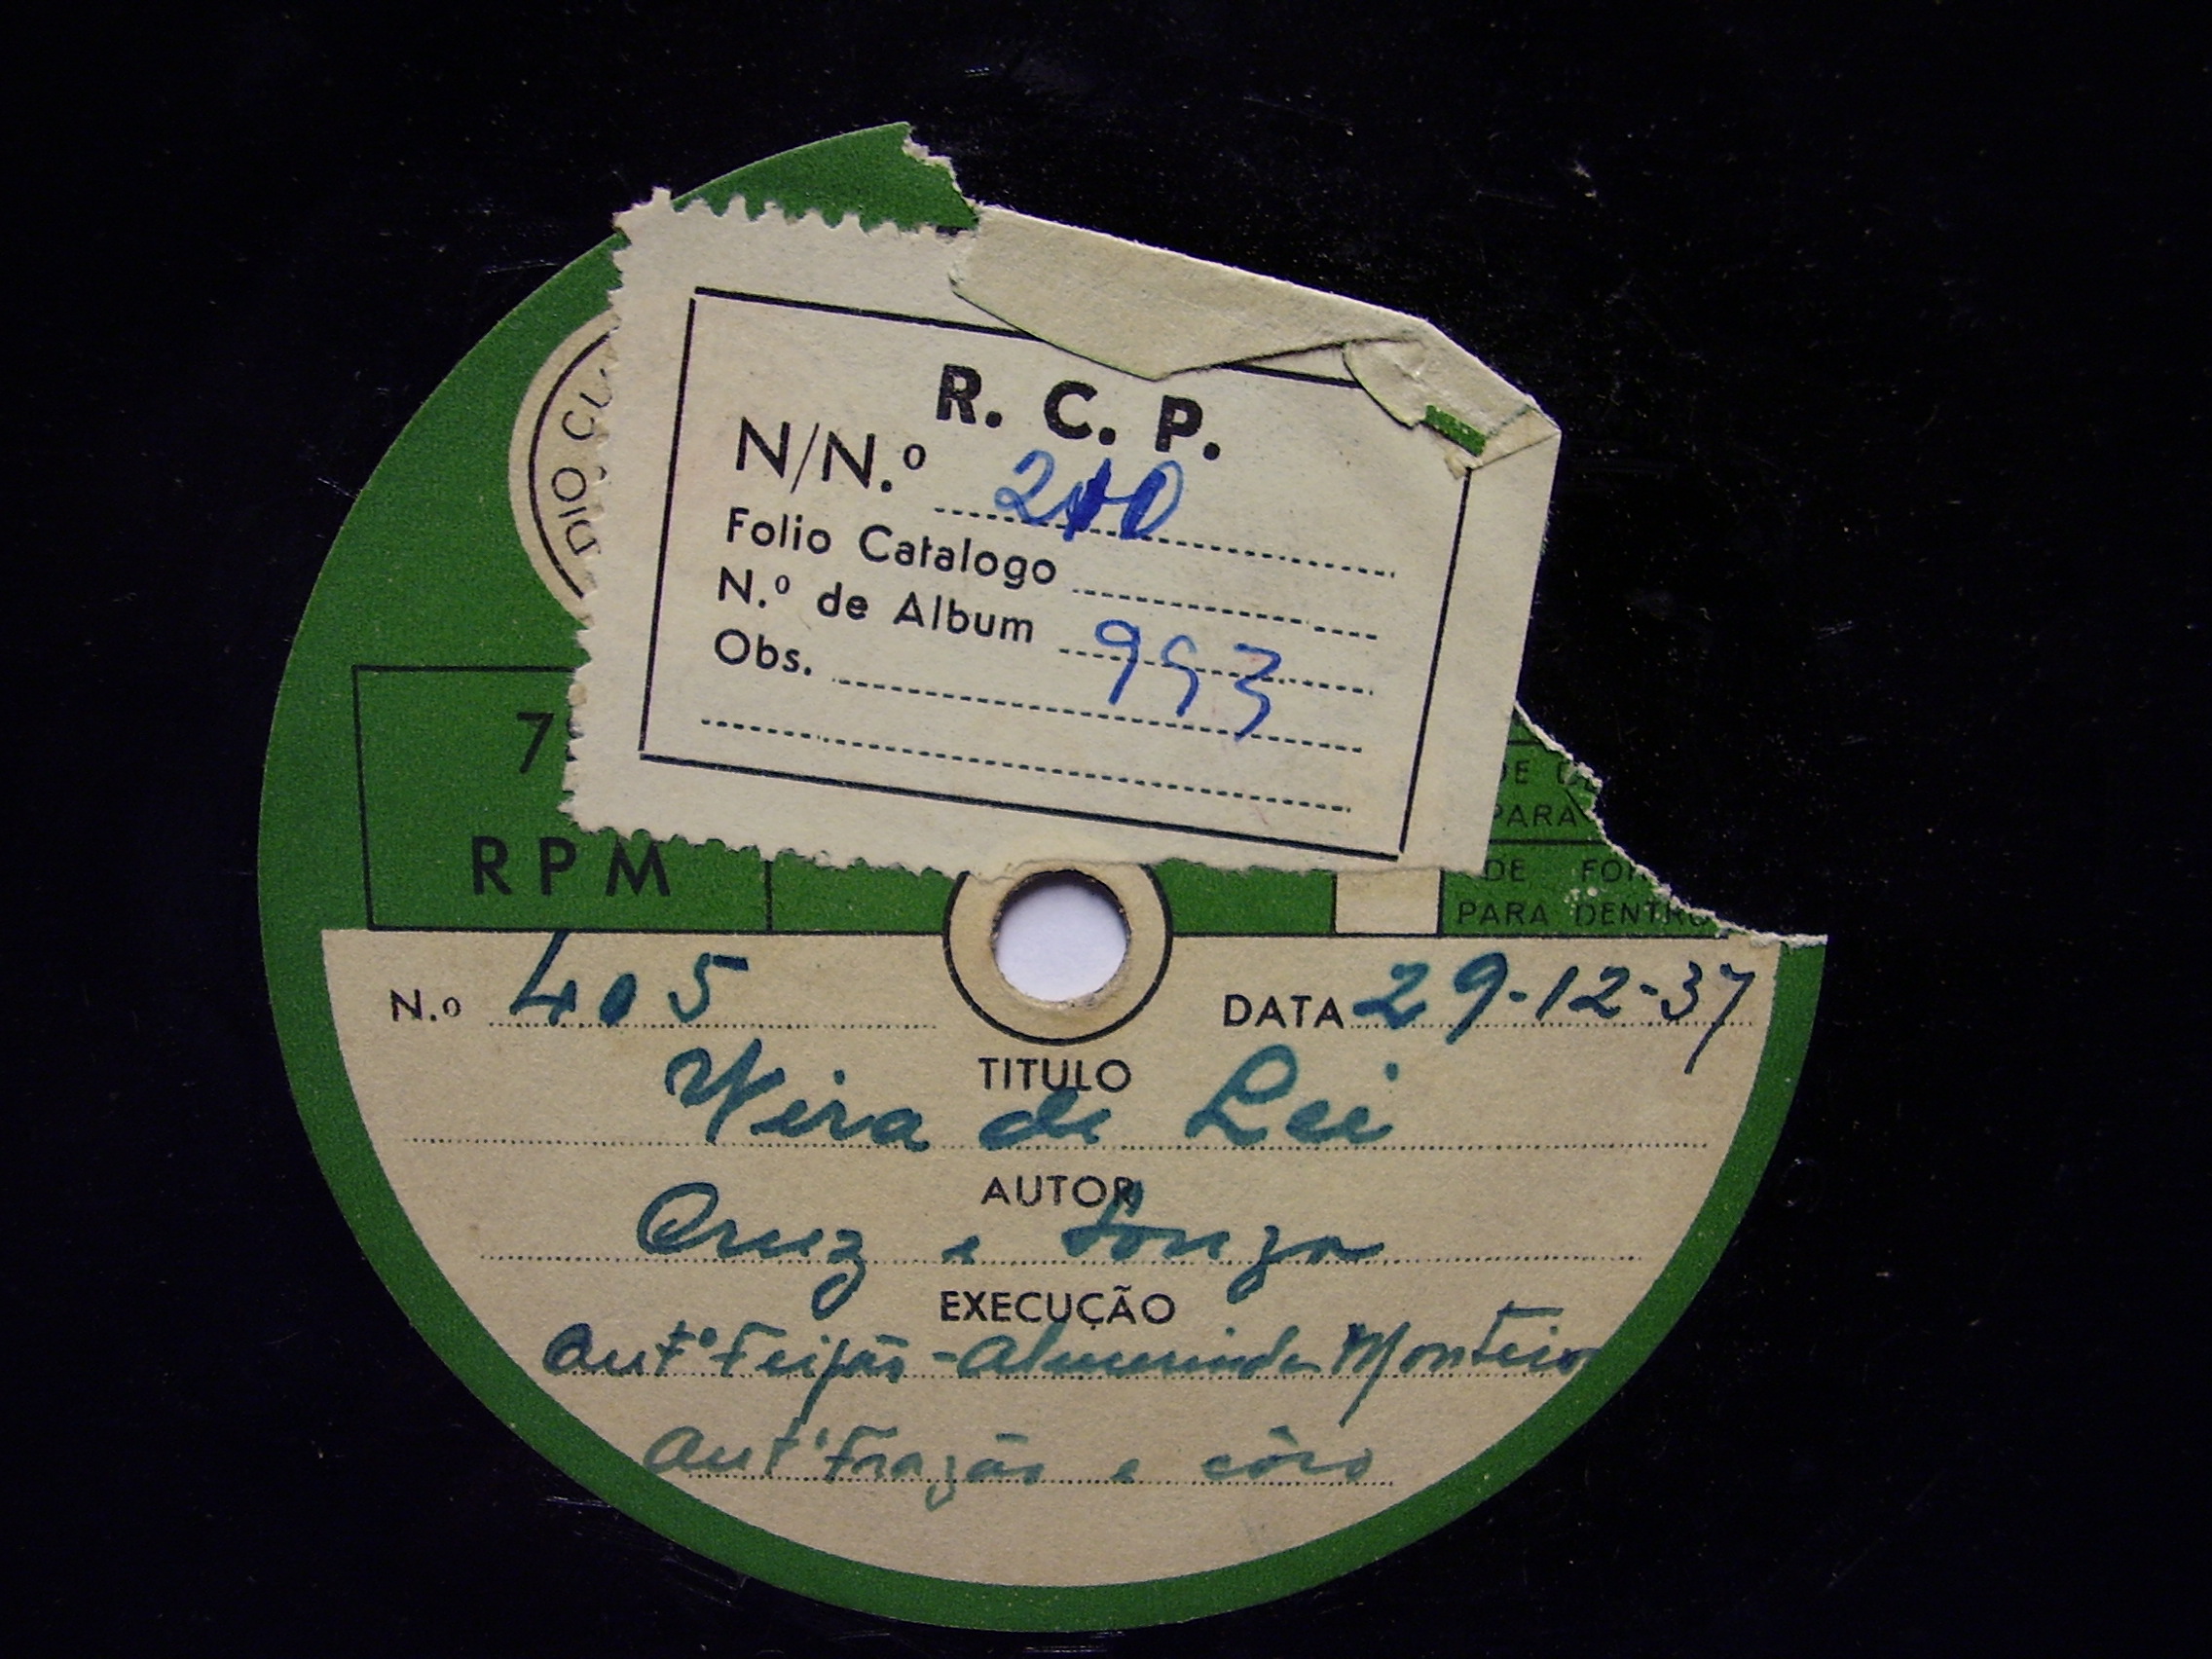 DIO CLU
R. C. P.
N/N.º 210
Folio Catalogo
N.º de Album 993
Obs.
7
RPM
DE
PARA
DE FOR
PARA DENTRO
N.º 405 DATA 29-12-37
TITULO
Vira de Lei
AUTOR
Cruz e Souza
EXECUÇÃO
Antº Feijão - Almerinda Monteiro
Antº Frazão e côro